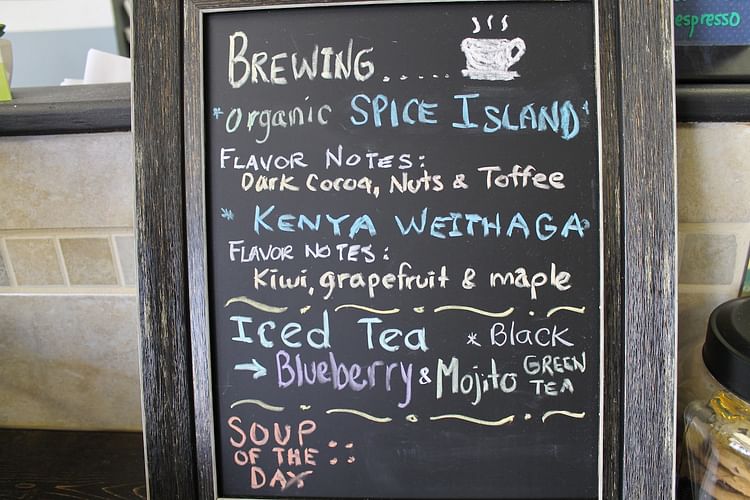 BREWING.....
*organic SPICE ISLAND*
FLAVOR NOTES:
Dark Cocoa, Nuts & Toffee
* KENYA WEITHAGA*
FLAVOR NOTES:
Kiwi, grapefruit & maple
Iced Tea * Black
→ Blueberry & Mojito GREEN TEA
SOUP
OF THE
DAY ::
espresso